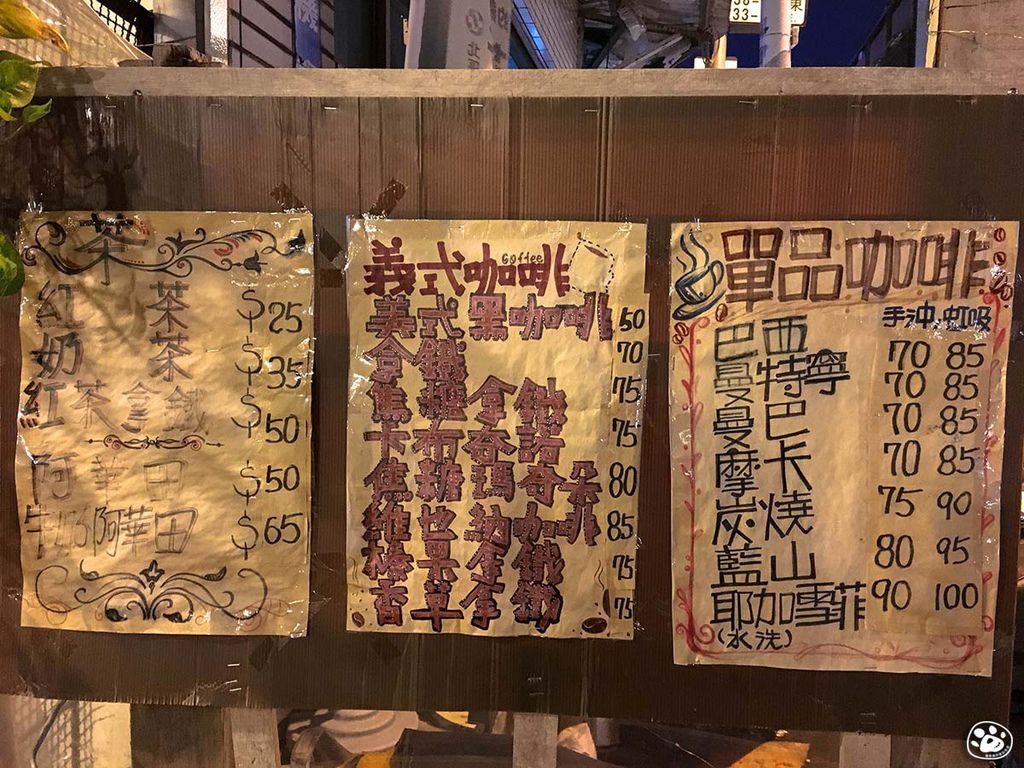 茶
紅茶 $25
奶茶 $35
紅茶拿鐵 $50
阿華田 $50
牛奶阿華田 $65
義式咖啡
Coffee
美式黑咖啡 50
拿鐵 70
焦糖拿鐵 75
卡布奇諾 75
焦糖瑪奇朵 80
維也納咖啡 85
榛果拿鐵 75
香草拿鐵 75
單品咖啡
手沖 虹吸
巴西 70 85
曼特寧 70 85
曼巴 70 85
摩卡 70 85
炭燒 75 90
藍山 80 95
耶加雪菲 90 100
(水洗)
33-
東
北